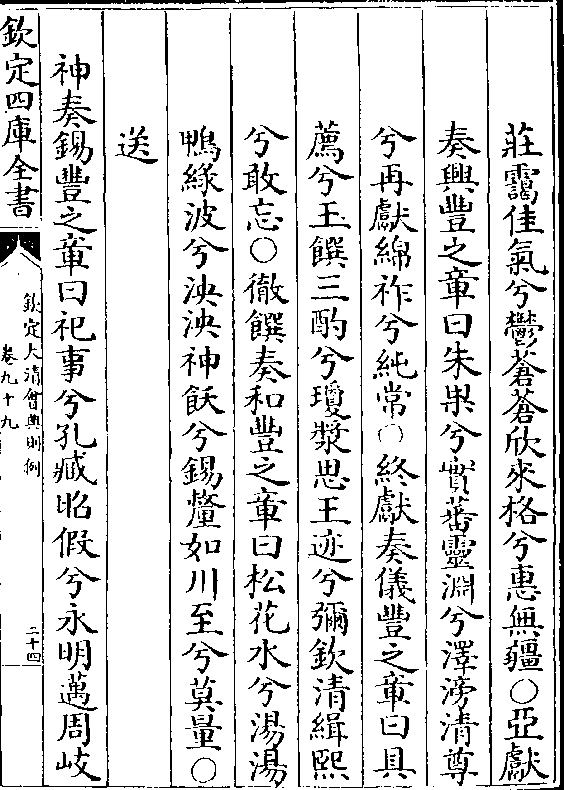 莊靄佳氣兮鬱蒼蒼欣來格兮惠無疆○亞獻
奏興豐之章曰朱果兮實蕃靈淵兮澤滂清尊
兮再獻綿祚兮純常○終獻奏儀豐之章曰具
薦兮玉饌三酌兮瓊漿思王迹兮彌欽清緝熙
兮敢忘○徹饌奏和豐之章曰松花水兮湯湯
鴨緑波兮泱泱神飫兮錫釐如川至兮莫量○
送
神奏錫豐之章曰祀事兮孔臧昭假兮永明邁周岐
欽定四庫全書
欽定大清會典則例
卷九十九
二十四